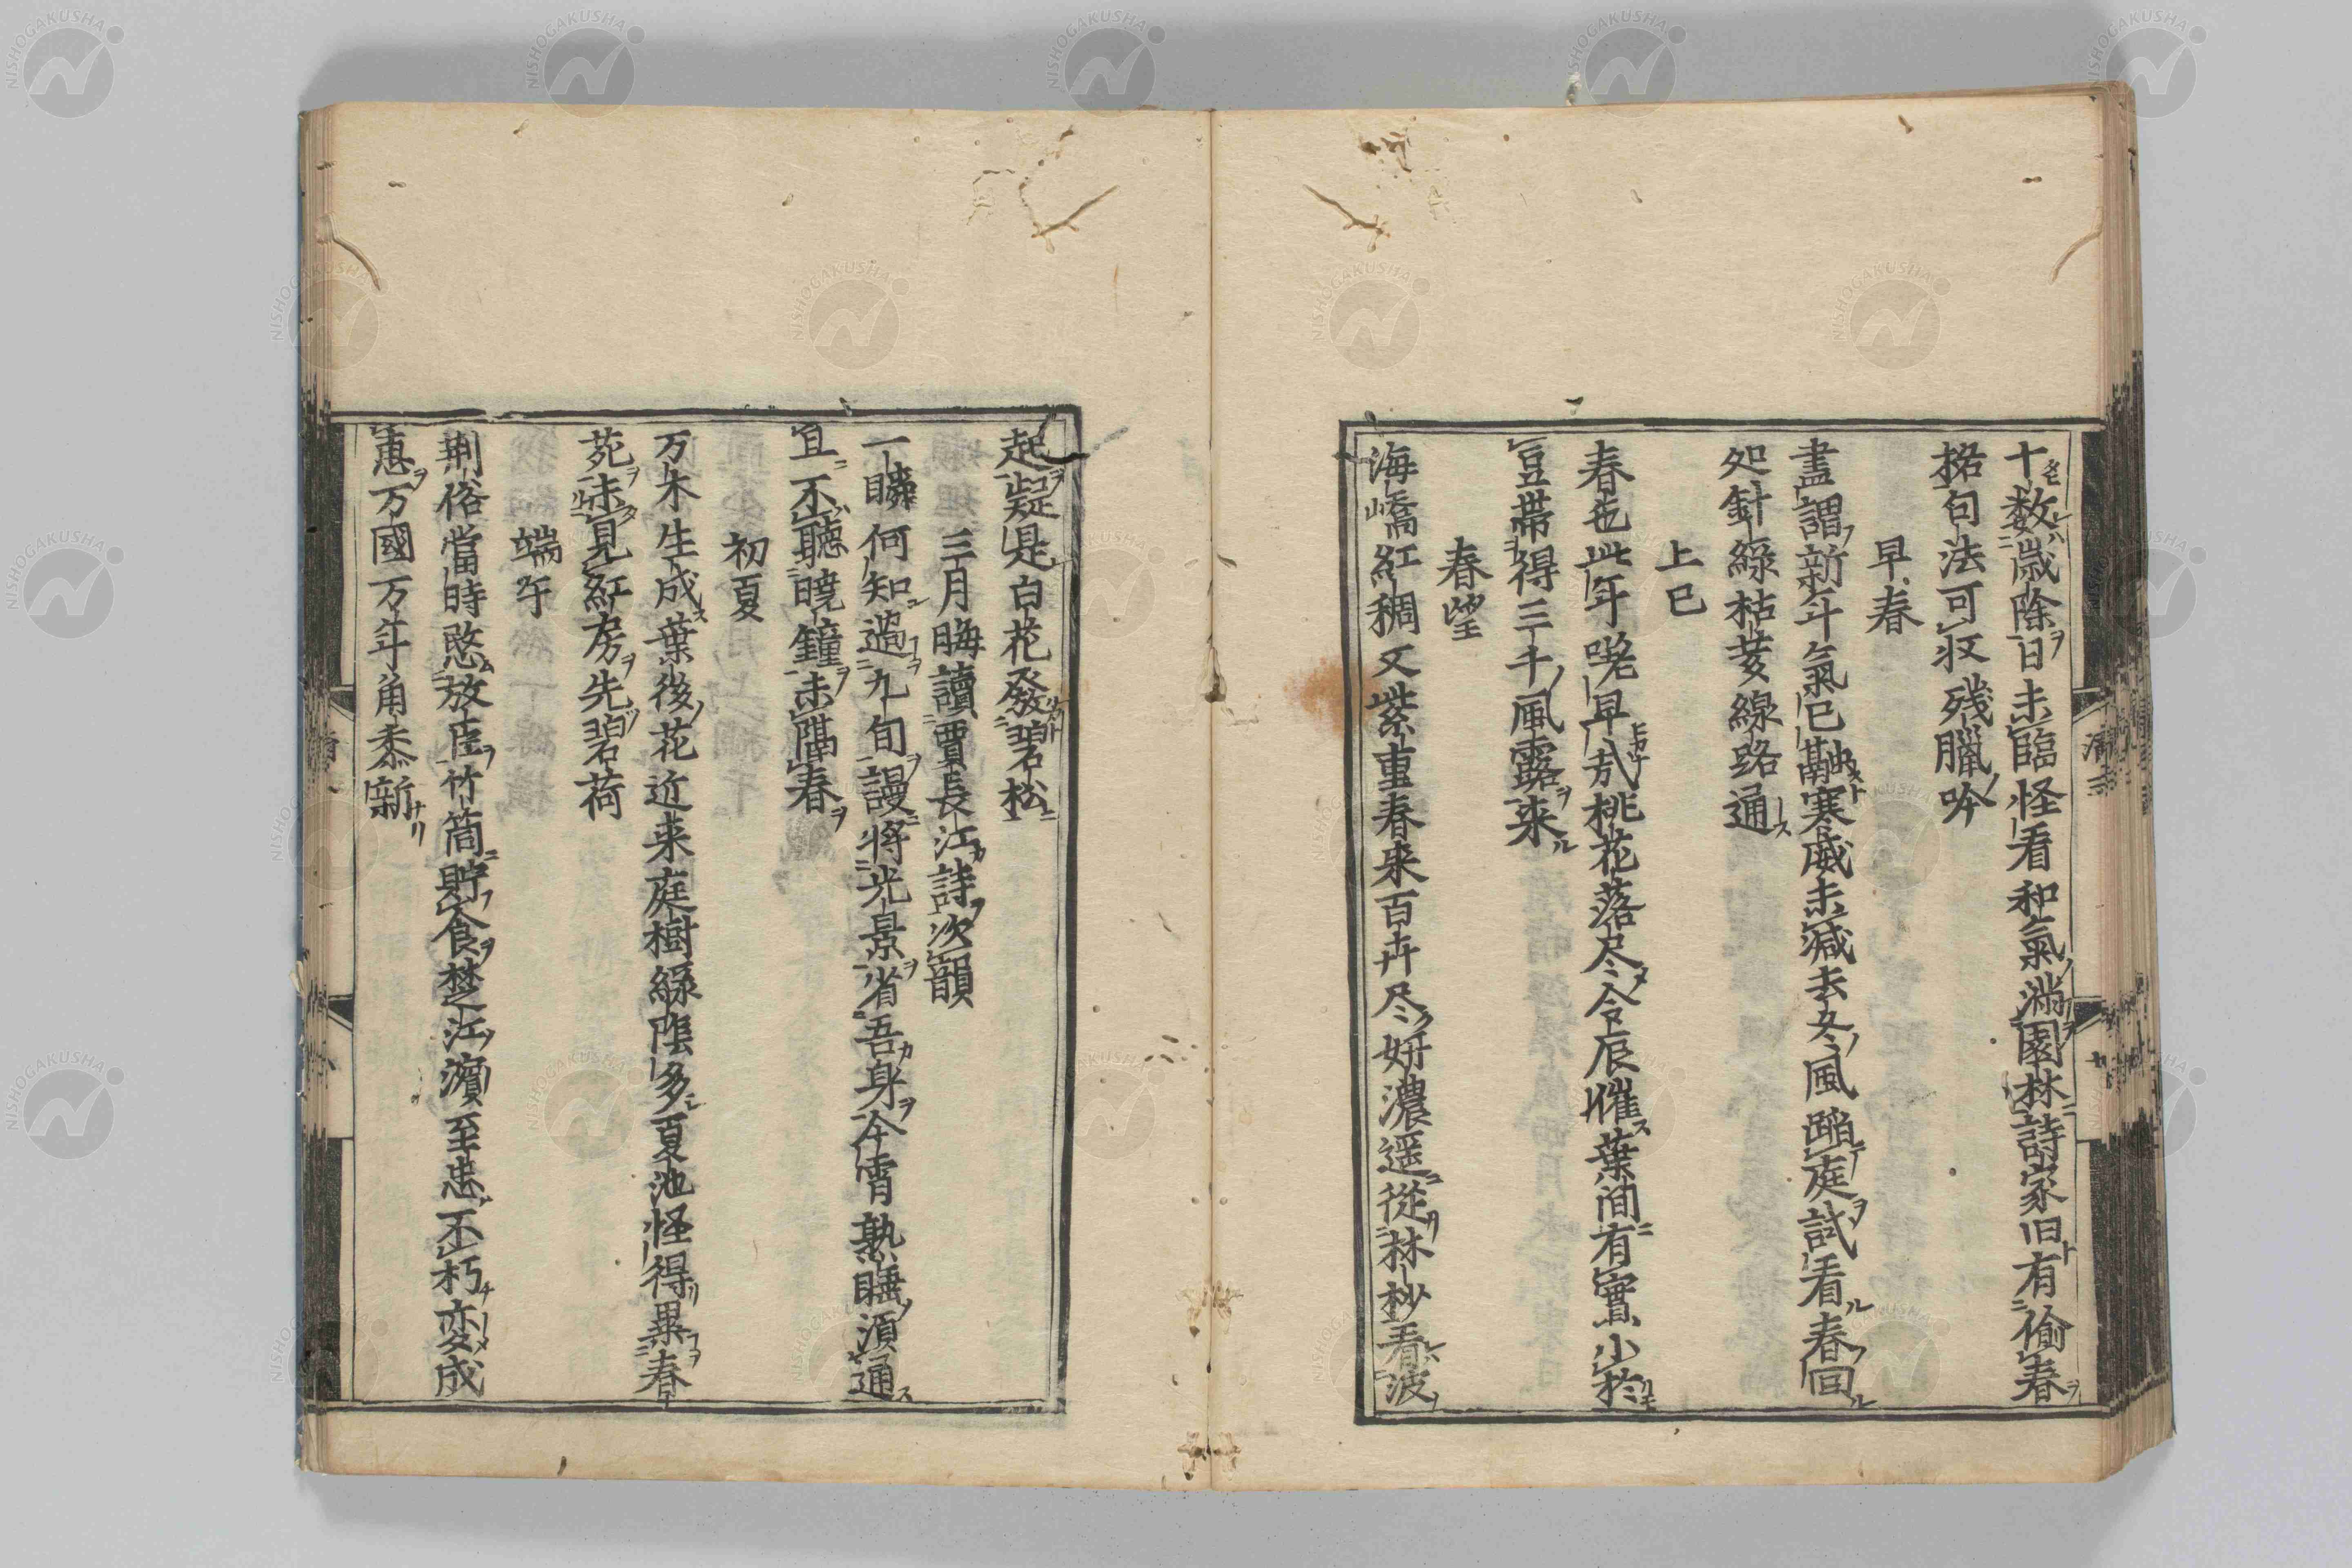 十数歳除日未臨怪看和氣満園林詩家旧有偷春
挌句法可収残臘吟
早春
盡謂新年氣已融寒威未減去冬風蹈庭試看春回
処針緑枯荄線路通
上巳
春也此年晩早哉桃花落尽令辰催葉間有實小於
豆帯得三千風露来
春望
海嶠紅稠又紫重春来百卉尽妍濃遥從林杪看波
起疑是白花發碧松
三月晦讀賈長江詩次韻
一瞬何知過九旬謾將光景省吾身今宵熟睡須通
且不聽曉鐘未隔春
初夏
万木生成葉後花近来庭樹緑陰多夏池怪得異春
苑未見紅房先碧荷
端午
荆俗當時愍放臣竹筒貯食楚江濱至忠不朽変成
惠万國万年角黍新
NISHOGAKUSHA